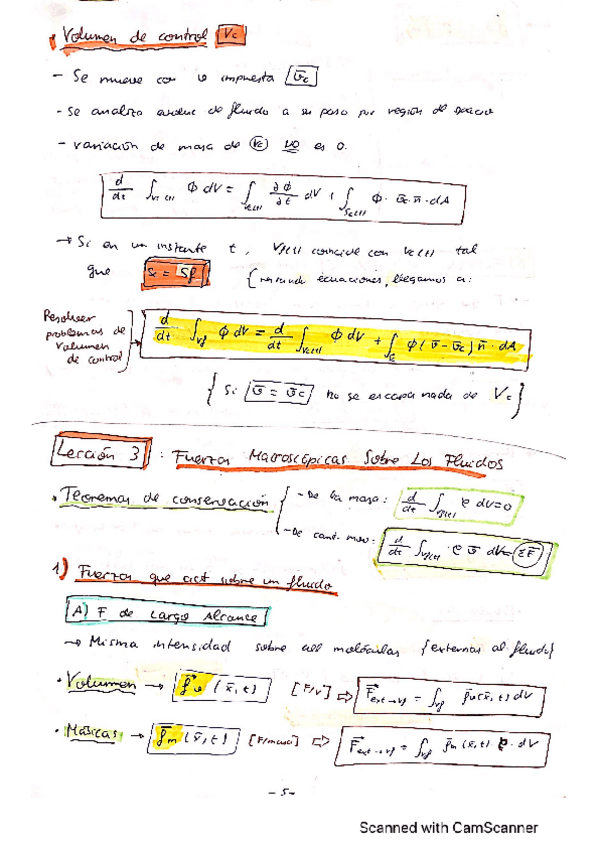 Volumen de control Vc
- Se mueve con v impuesta v̄c
- Se analiza evoluc de fluido a su paso por región del espacio
- variación de masa de Vc NO es 0.
d/dt ∫Vc(t) ϕ dV = ∫Vc(t) ∂ϕ/∂t dV + ∫Sc(t) ϕ · v̄c · n̄ · dA
→ Si en un instante t, Vf(t) coincide con Vc(t) tal
que Sc = Sf { restando ecuaciones, llegamos a:
Resolver
problemas de
Volumen
de control
d/dt ∫Vf ϕ dV = d/dt ∫Vc(t) ϕ dV + ∫ ϕ (v̄ - v̄c) n̄ · dA
{ Si v̄ = v̄c no se escapa nada de Vc }
Lección 3 : Fuerzas Macroscópicas Sobre Los Fluidos
• Teoremas de conservación { - De la masa: d/dt ∫Vf(t) ρ dV = 0
- De cant. mov: d/dt ∫Vf(t) ρ v̄ dV = ΣF̄
1) Fuerzas que act sobre un fluido
A) F de Largo Alcance
→ Misma intensidad sobre all moléculas {externas al fluido}
• Volumen → f⃗v (x̄, t) [F/V] ⇨ F⃗ext→Vf = ∫Vf f̄v(x̄, t) dV
• Másicas → f⃗m (x̄, t) [F/masa] ⇨ F⃗ext→Vf = ∫Vf f̄m (x̄, t) · ρ · dV
- 5 -
Scanned with CamScanner